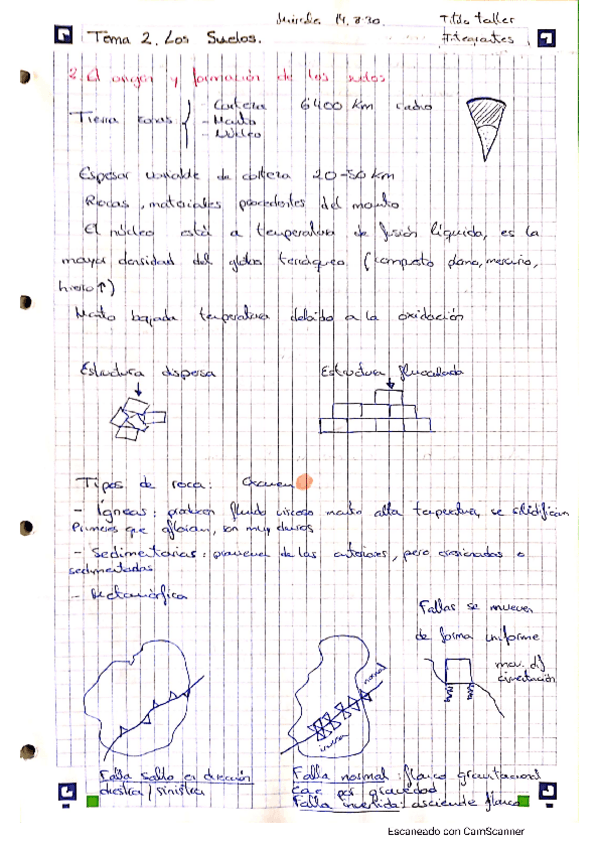 14. 8:30.
Titulo taller
Tema 2. Los Suelos.
Integrantes
2. El origen y formación de los suelos
Tierra zonas
- Corteza 6400 km radio
- Manto
- Núcleo
Espesor variable de corteza 20-50 km
Rocas, materiales procedentes del manto
El núcleo está a temperatura de fusión líquida, es la
mayor densidad del globo terráqueo. (compuesto plomo, mercurio,
hierro ↑)
Manto bajada temperatura debido a la oxidación
Estructura dispersa
Estructura floculada
Tipos de roca:
- Ígneas: fluido viscoso manto alta temperatura, se solidifican
Primeras que afloran, son muy duros
- Sedimentarias: provienen de las anteriores, pero erosionadas o
sedimentadas
- Metamórfica
Fallas se mueven
de forma uniforme
mov. d)
cimentación
normal
inversa
Falla salto en dirección
diestra / sinistra
Falla normal: flanco gravitacional
cae por gravedad
Falla invertida: asciende flanco
Escaneado con CamScanner